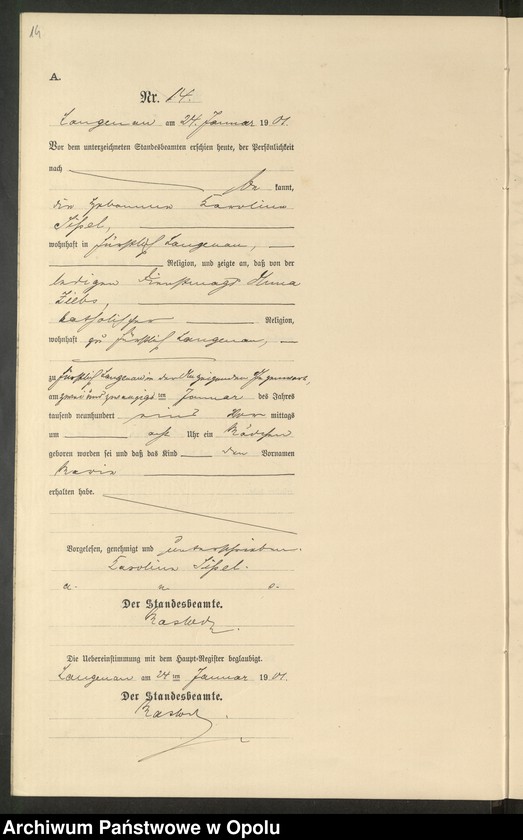 14
A.
Nr. 14.
Langenau am 24. Januar 1901.
Vor dem unterzeichneten Standesbeamten erschien heute, der Persönlichkeit
nach
be kannt,
die Hebamme Karoline
wohnhaft in Fürstlich Langenau,
Religion, und zeigte an, daß von der
ledigen Dienstmagd Anna
katholischer Religion,
wohnhaft zu Fürstlich Langenau,
zu Fürstlich Langenau in der Anzeigenden Gegenwart,
am zwei und zwanzigsten Januar des Jahres
tausend neunhundert eins Vor mittags
um acht Uhr ein Mädchen
geboren worden sei und daß das Kind den Vornamen
Marie
erhalten habe.
Vorgelesen, genehmigt und unterschrieben.
Karoline
Der Standesbeamte.
Die Uebereinstimmung mit dem Haupt-Register beglaubigt.
Langenau am 24 ten Januar 1901.
Der Standesbeamte.
Archiwum Państwowe w Opolu